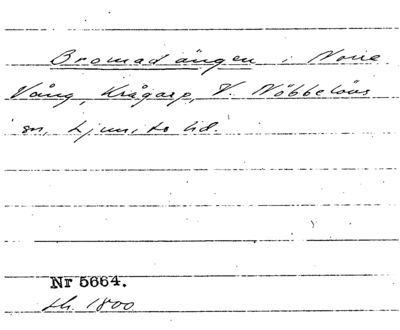 Bromadängen i Norre
Vång, Krågarp, V. Nöbbelövs
sn, Ljunits hd.
Nr 5664.
1800